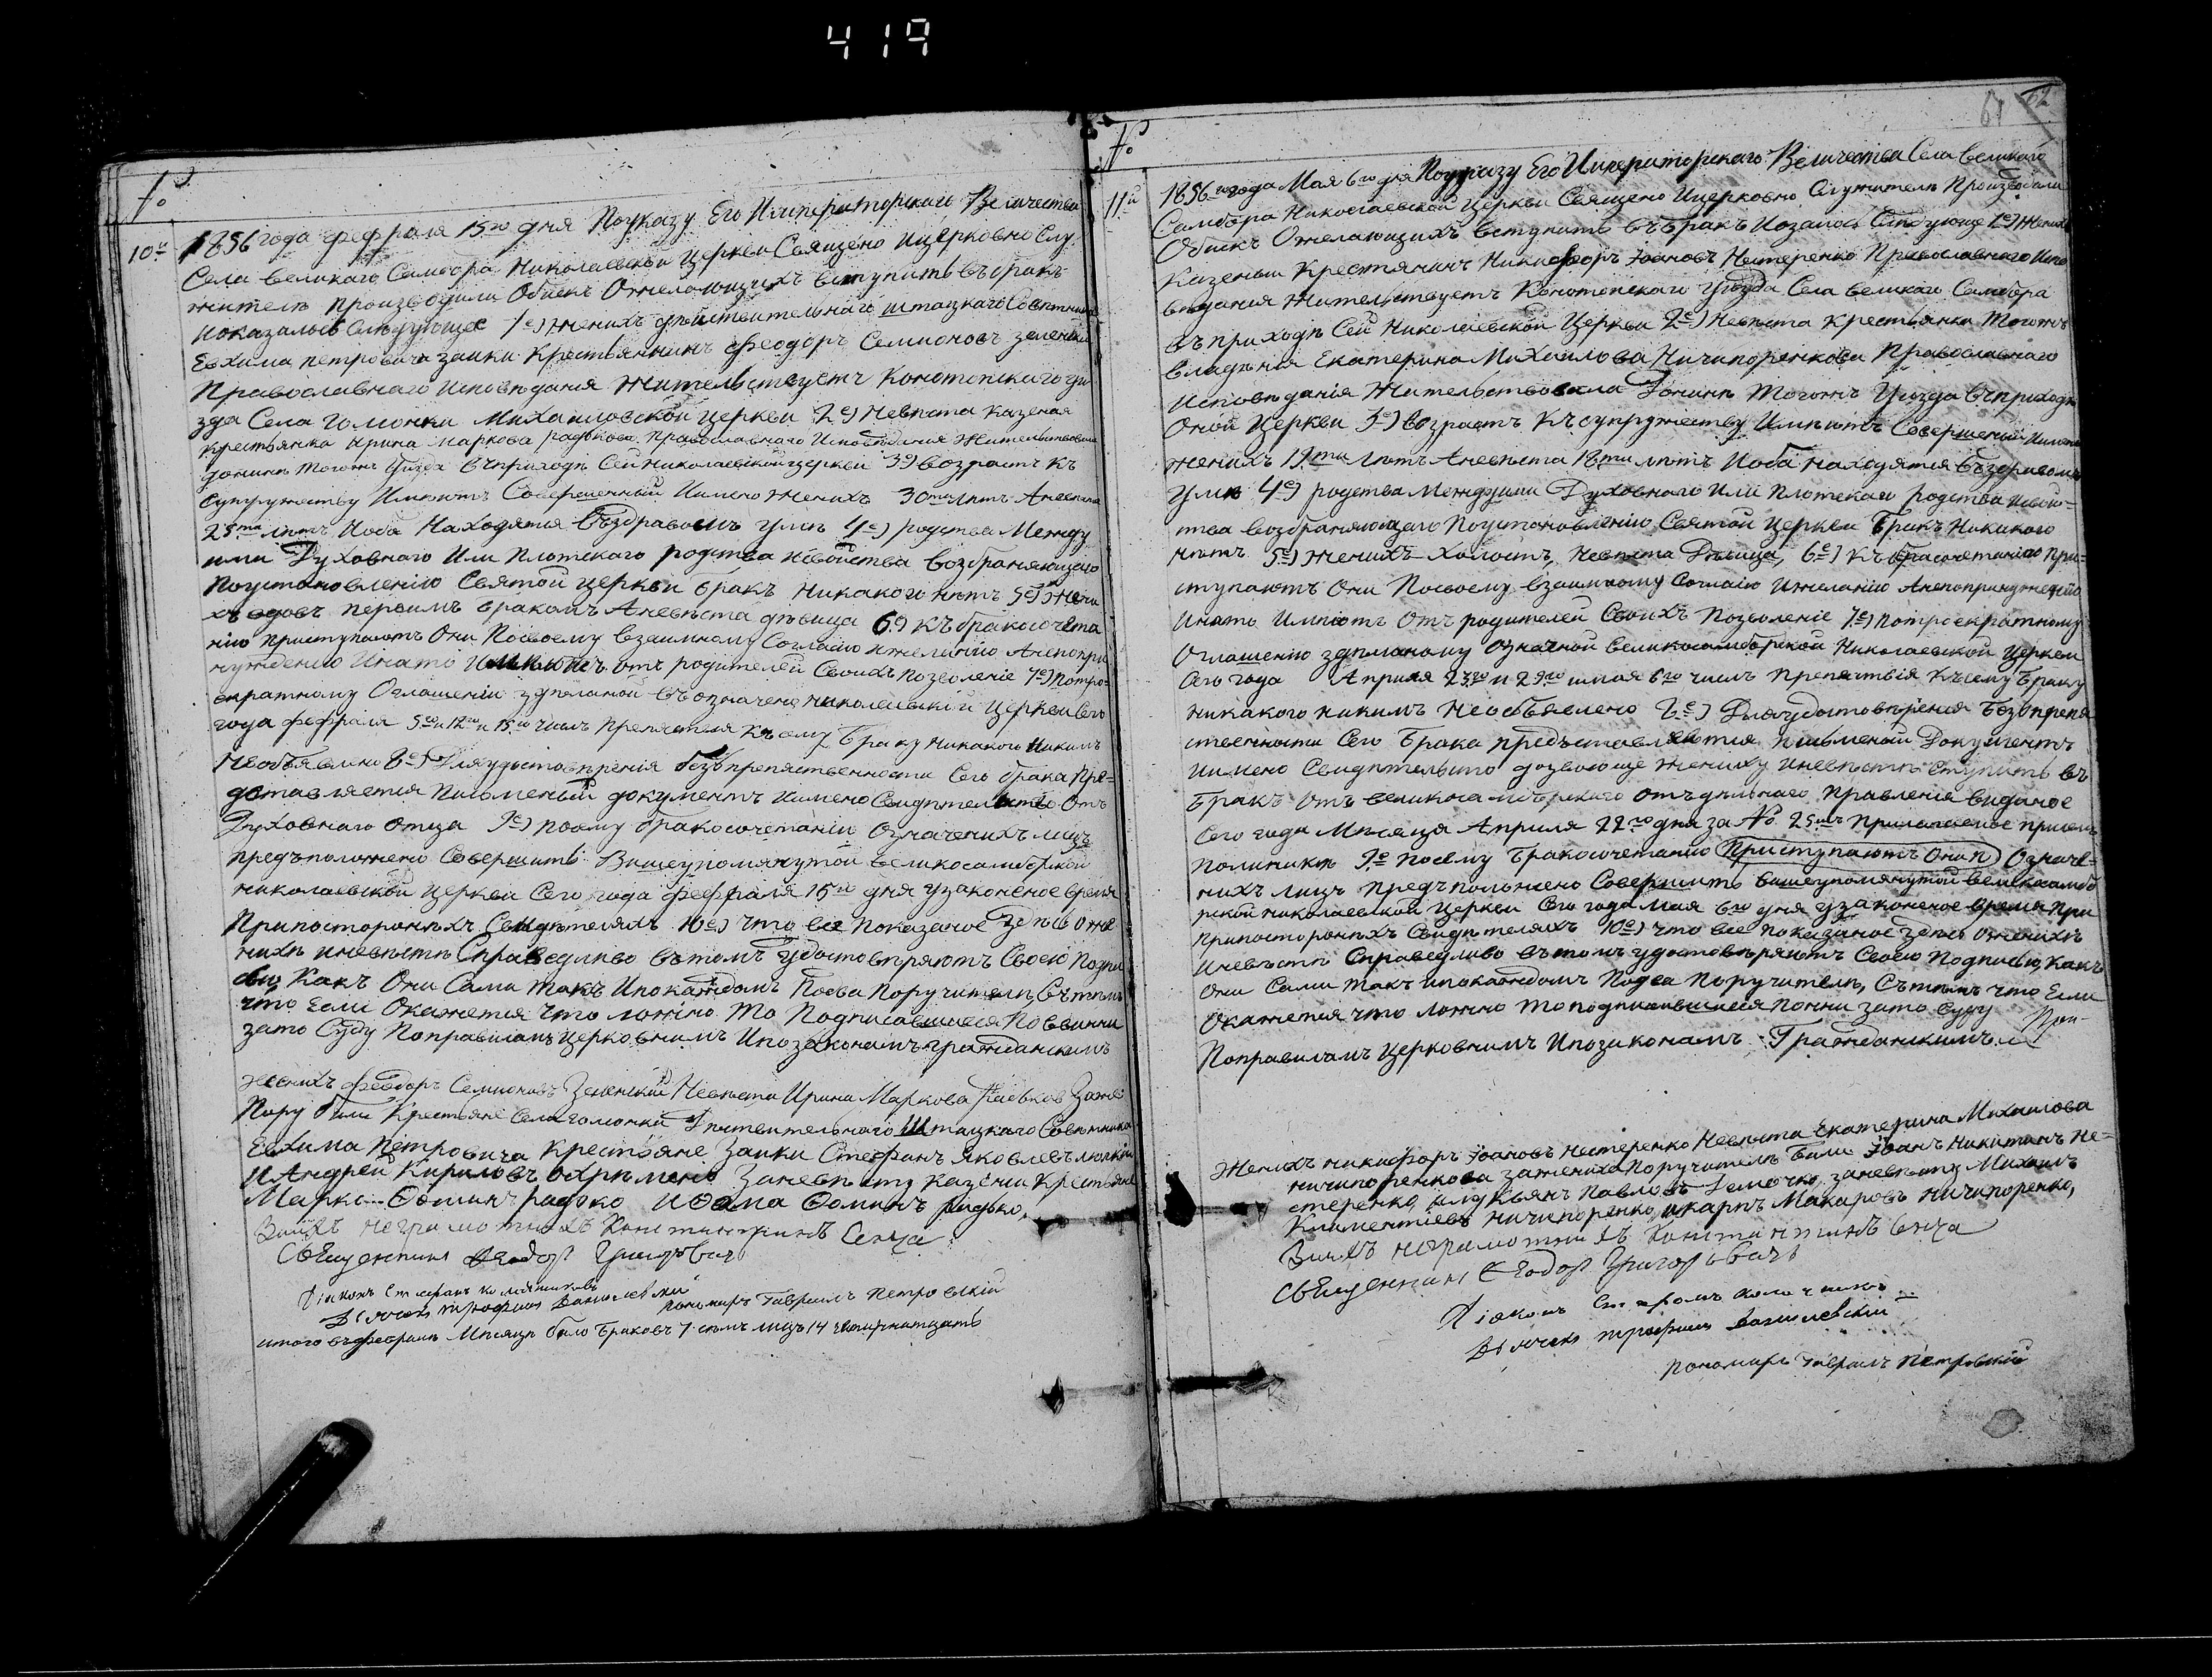 419
№
10й
1856 года февраля 15го дня Поуказу Его Императорскаго Величества
Села великаго Самбора Николаевской Церкви Священо ицерковно Слу
жители производили Обискъ Ожелающихъ вступить въ бракъ
ипоказалось Следующее 1е) женихъ действительнаго штацкаго Советника
Евхима петровича заики Крестьянинъ Феодоръ Семионовъ зеленский
Православнаго исповеданія жительствуетъ Конотопскаго уе
зда Села гомонки Михаиловской церкви 2е) Невеста казеная
крестьянка ирина маркова радькова православнаго Исповеданія жительствовала
донине тогожъ Уезда въприходе Сей Николаевской церкви 3е) возрастъ къ
супружеству Имеютъ Совершенный Иимено женихъ 30ти летъ Аневеста
25ти летъ Иоба Находятся въздравомъ уме 4е) родства Между
ими Духовнаго Или Плотскаго родства исвойства возбраняющаго
Поустановлению Святой церкви бракъ Никакого нетъ 5е) Жени
хъ вдовъ первимъ бракомъ Аневеста девица 6е) Къ бракосочета
нию приступаютъ Они Посвоему взаимному Согласию ижеланию Анепопри
нуждению Инато имеютъ отъ родителей Своихъ позволеніе 7е) Потро=
екратному Оглашении зделаной въ означеной николаевской церкви Сего
года февраля 5го и 12го и 15го числъ Препятствия къ сему Браку никакого Никимъ
Необъявлено 8е) Для удостоверенія безъпрепятственности Сего брака пре=
доставляется Писменый документъ Иимено Свидетельство Отъ
Духовнаго отца 9е) Посему бракосочетании Означенихъ лицъ
предъположено Совершить Вишеупомянутой великосамборской
николаевской церкви Сего года февраля 15го дня узаконеное время
Припосторонихъ Свидетеляхъ 10е) что все показаное зде[сь] ожe
нихе иневесте Справедливо въ томъ удостоверяютъ Своею Подпи
сью Какъ Они Сами такъ Ипокаждомъ Подва Поручители, Съ темъ
что Если Окажется что ложно То Подписавшиеся Повинни
зато Суду Поправиламъ церковнимъ Ипозаконамъ гражданскимъ
женихъ Феодоръ Семионовъ Зеленский Невеста Ирина Маркова Радькова Зажени
Пору били Крестьяне Села гомонки Действительнаго Штацкаго Советника
Евхима Петровича Крестьяне Заики Стефанъ Яковлевъ
И Андрей Кириловъ Заневесту казении Крестьяне
Марко Фоминъ радько И Фома Фоминъ радько,
Вмхъ неграмотнихъ Константинъ Сенча
Священникъ Феодоръ Григоровичъ
Діаконъ Стефанъ
Дячокъ трофимъ Данилевский
пономарь Гавриилъ Петровскій
итого въ феврале Месяце било Браковъ 7 семъ лицъ 14 четирнатцать
№
61
11й
1856го года Мая 6го дня Поуказу Его Императорскаго Величества Села великаго
Самбора Николаевской Церкви Священо Ицерковно Служители Производили
Обискъ Ожелающихъ вступить въ бракъ Ипоказалось Следующее 1е) Женихъ
Казеный Крестянинъ Никифоръ Іоановъ Нестеренко Православнаго испо
веданія жительствуетъ Конотопскаго Уезда Села великаго Самбора
въ приходе Сей Николаевской Церкви 2е) Невеста Крестьянка Тогожъ
владенія Екатерина Михаилова Ничипоренкова Православнаго
Исповеданія Жительствовала Донине Тогожъ Уезда въприходе
Оной Церкви 3е) возрастъ Къ супружеству Имеютъ Совершеный Иимено
женихъ 19ти летъ Аневеста 18ти летъ Иоба находятся въздравомъ
уме 4е) родства Междуими Духовнаго Или Плотскаго родства исвой=
тва возбраняющаго Поустановлению Святой церкви Бракъ Никакого
нетъ 5е) Женихъ Холостъ, Невеста Девица, 6е) Къ бракосочетанию при-
ступаютъ Они Посвоему взаимному Согласию Ижеланию Анепопринуждению
Инато Имеютъ Отъ родителей Своихъ Позволение 7е) Потроекратному
Оглашению зделаному означной великосамборской Николаевской церкви
Сего года Априля 23го и 29го имая 6го числъ Препятствия Късему браку
никакого никимъ Необъявлено 8е) Для удостоверения безъпрепя
ственности Сего Брака предъставляется писменой Документъ
Иимено Свидетельство дозволяюще жениху иневесте вступить въ
бракъ отъ великосамборскаго отъдельнаго Правления виданое
Сего года Месяца Априля 22го дня за № 25мъ Приложеное присемъ
Полинике 9е посему Бракосочетанию Приступаютъ Они п Означе=
нихъ лицъ предъположено Совершить вишеупомянутой великосамбо
рской николаевской церкви Сего года Мая 6го дня узаконеное время При
припосторонихъ Свидетеляхъ 10е) что все показаное здесь ожених
иневесте Справедливо въ томъ удостоверяютъ Своею Подписью, какъ
Они Сами такъ ипокаждомъ Подва Поручители, Съ темъ что Если
Окажется что ложно то подписавшиеся повини зато Суду
Поправиламъ церковнимъ Ипозаконамъ Гражданскимъ
Женихъ никифоръ Іоановъ Нестеренко Невеста Екатерина Михаилова
ничипоренкова зажениха Поручители Били Іоанъ Никитинъ Не=
стеренко, илукьянъ Павловъ Демочко, заневесту Михаилъ
Климентіевъ ничипоренко, икарпъ Макаровъ Ничипоренко,
Вмхъ неграмотнихъ Константинъ Сенча
Священникъ Феодоръ Григоровичъ
Діаконъ Стефанъ
Дячокъ трофимъ Данилевский
пономарь Гавриилъ Петровский